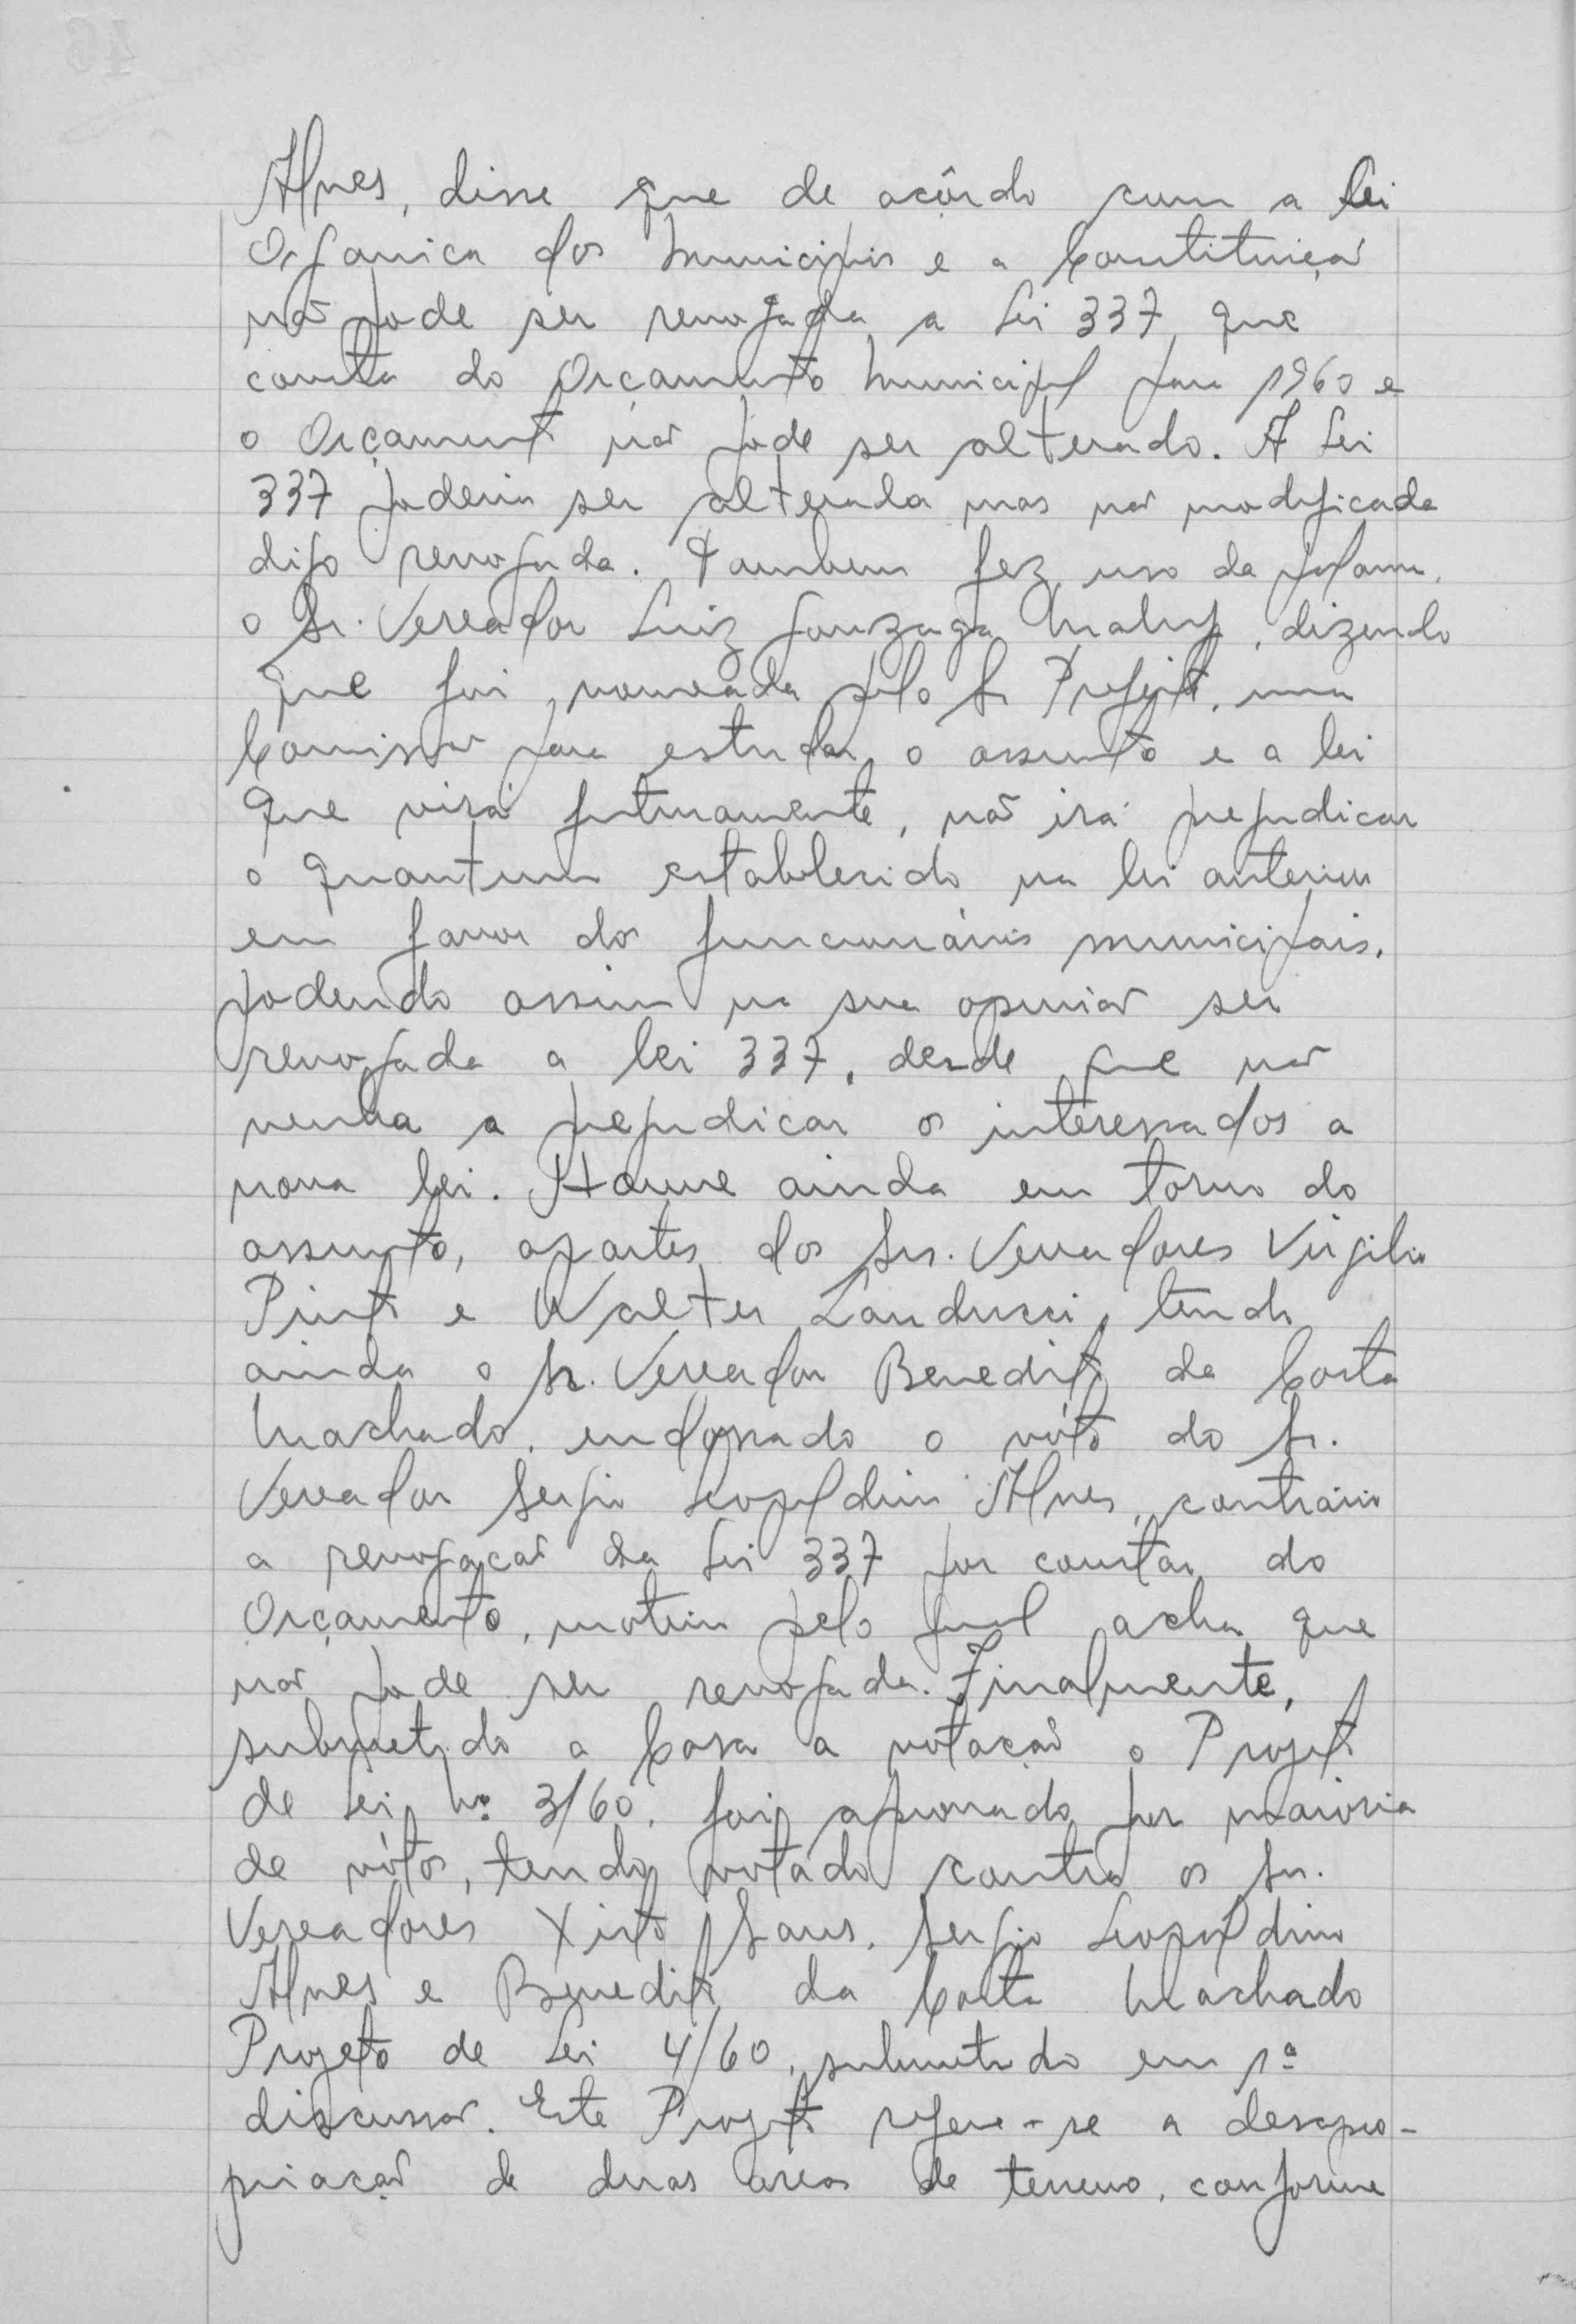 Alves, disse que de acôrdo com a lei
Organica dos Municipios e a Constituição
não pode ser revogada a Lei 337, que
consta do Orçamento Municipal para 1960 e
o Orçamento não pode ser alterado. A Lei
337 poderia ser alterada mas não modificada
digo revogada. Tambem fez uso da palavra,
o Sr. Vereador Luiz Gonzaga, dizendo
que foi nomeada pelo Sr Prefeito, uma
Comissão para estudar o assunto e a lei
que virá futuramente, não irá prejudicar
o quantum estabelecido na lei anterior
em favor dos funcionários municipais,
podendo assim na sua opinião ser
revogada a lei 337, desde que não
venha a prejudicar os interessados a
nova lei. Houve ainda em torno do
assunto, apartes dos Srs. Vereadores Virgilio
Pinto e Walter Landucci, tendo
ainda o Sr. Vereador Benedito da Costa
Machado, endossado o vóto do Sr.
Vereador Sergio Leopoldino Alves, contrário
a revogação da Lei 337 por constar do
Orçamento, motivo pelo qual acha que
não pode ser revogada. Finalmente,
submetido a Casa a votação o Projeto
de Lei Nº 3/60, foi aprovado por maioria
de vótos, tendo votado contra os Srs.
Vereadores Xisto, Sergio Leopoldino
Alves e Benedito da Costa Machado
Projeto de Lei 4/60, submetido em 1ª
discussão. Este Projeto refere-se a desapro-
priação de duas areas de terreno, conforme